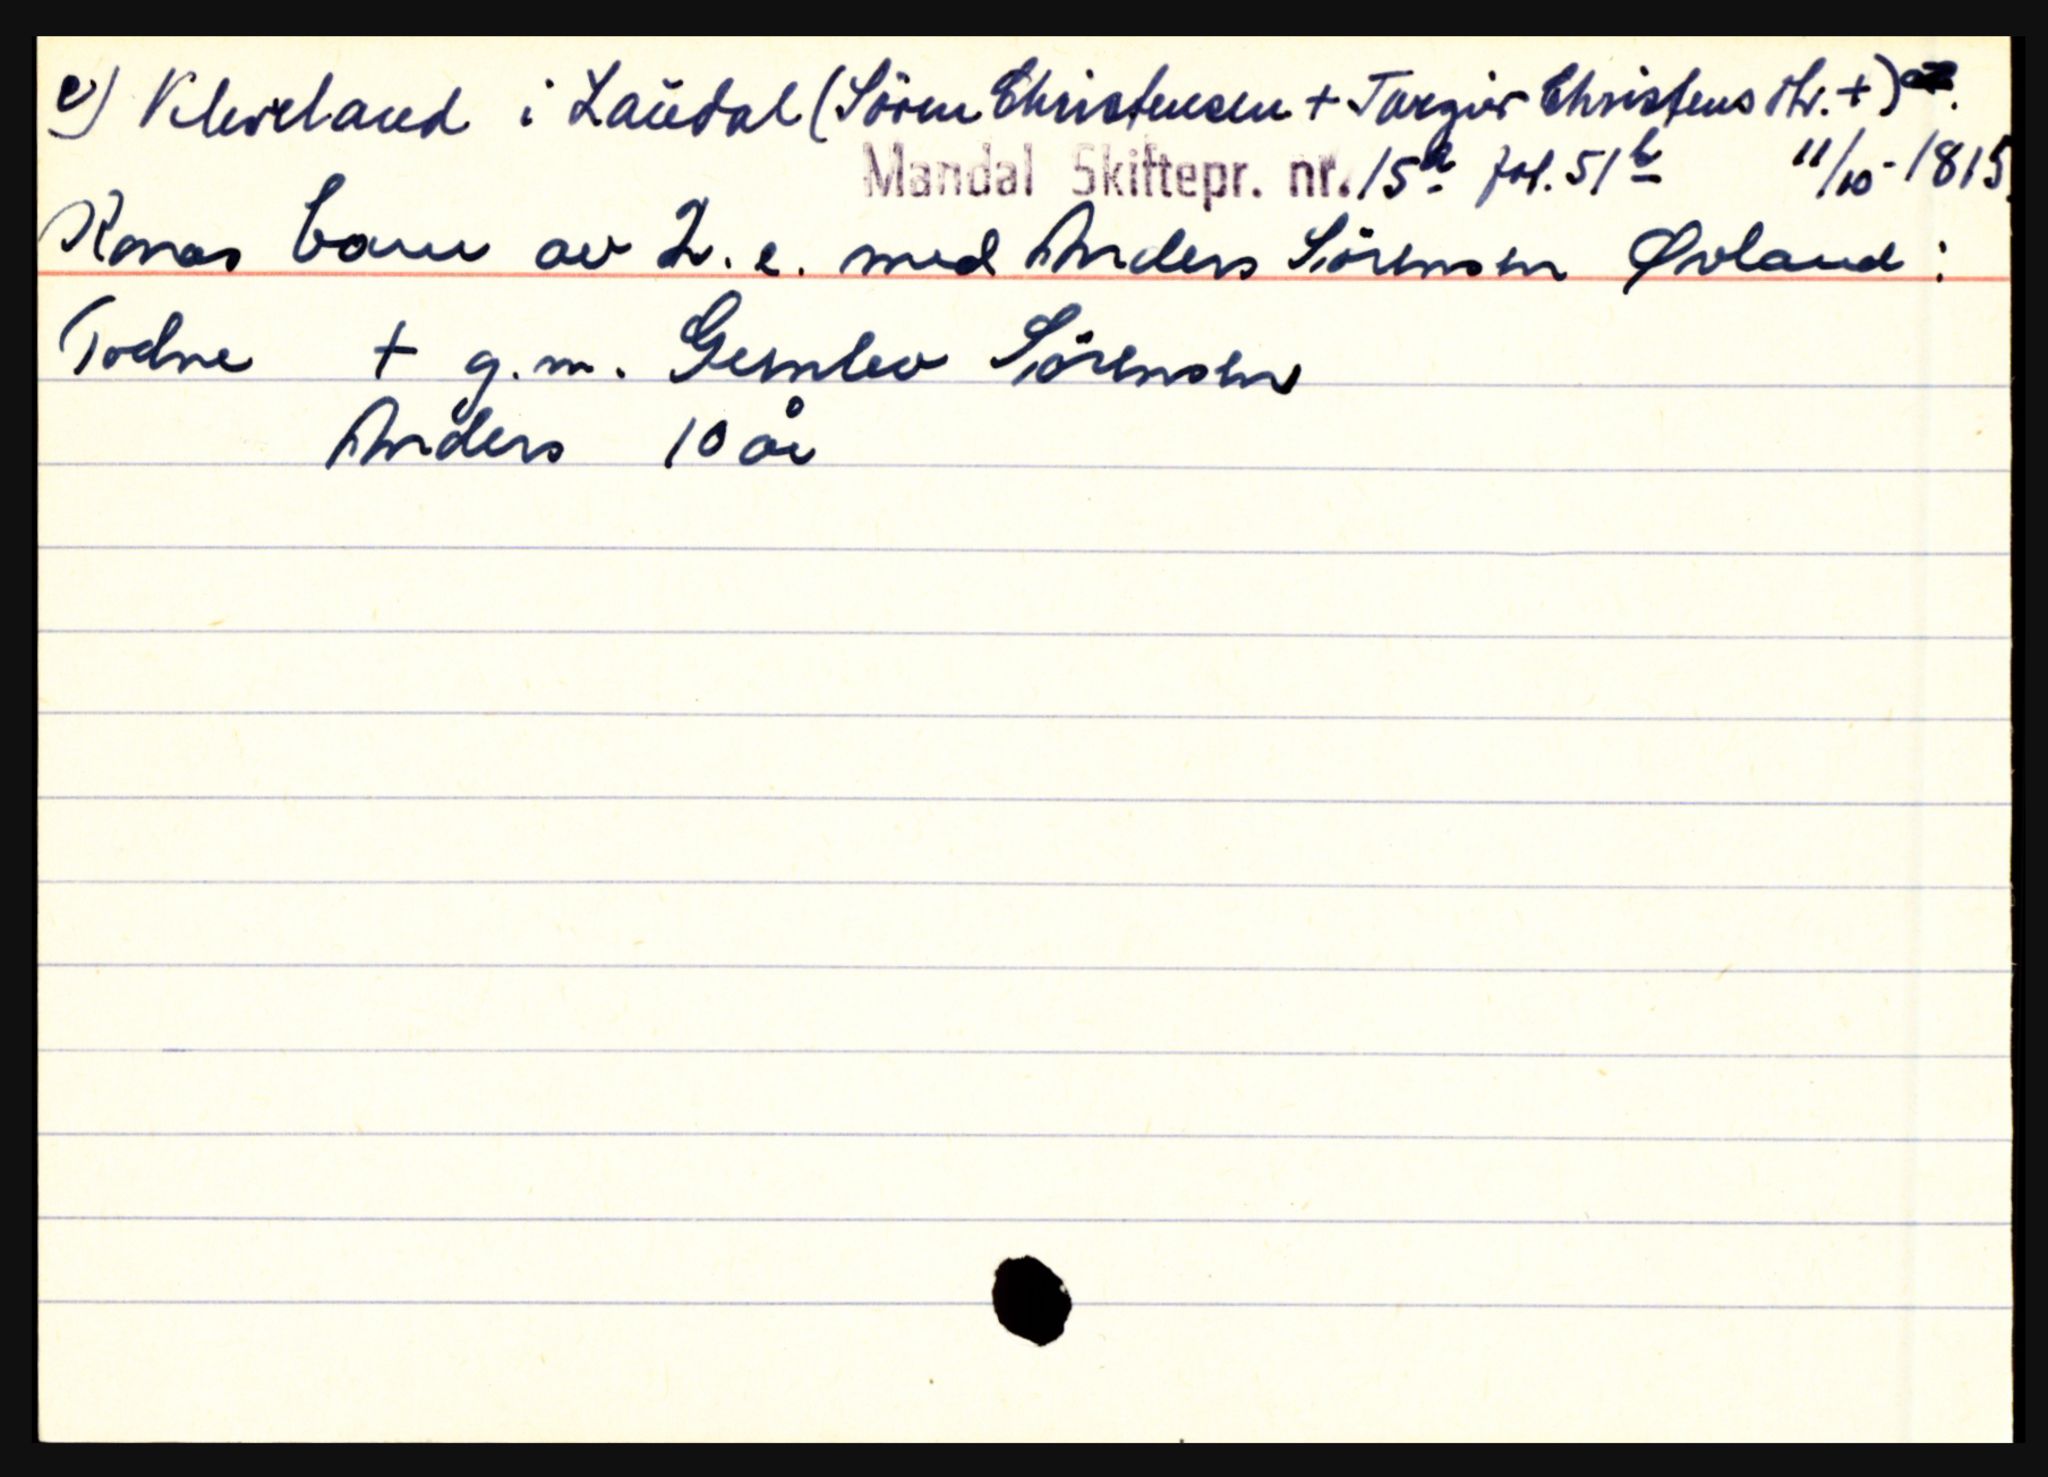 c) Kleveland i Laudal (Søren Christensen + Torgier Christensdtr. +)
Mandal Skiftepr. nr. 15a fol. 51b 11/10-1815.
Konas barn av 2. e. med Anders Sørensen Øvland:
Todne + g.m. Gernlev Sørensen
Anders 10 år